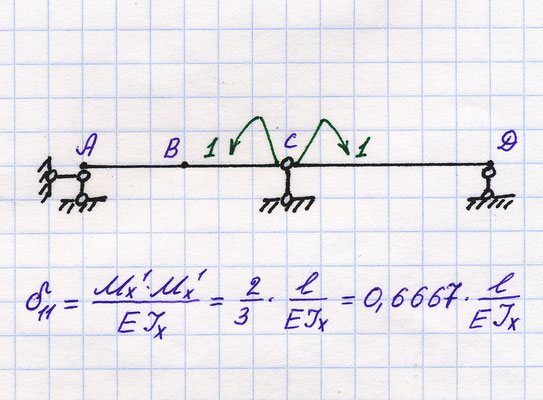 A B 1 C 1 D
δ₁₁ = Mₓ¹·Mₓ¹ / EJₓ = 2/3 · l/EJₓ = 0,6667 · l/EJₓ